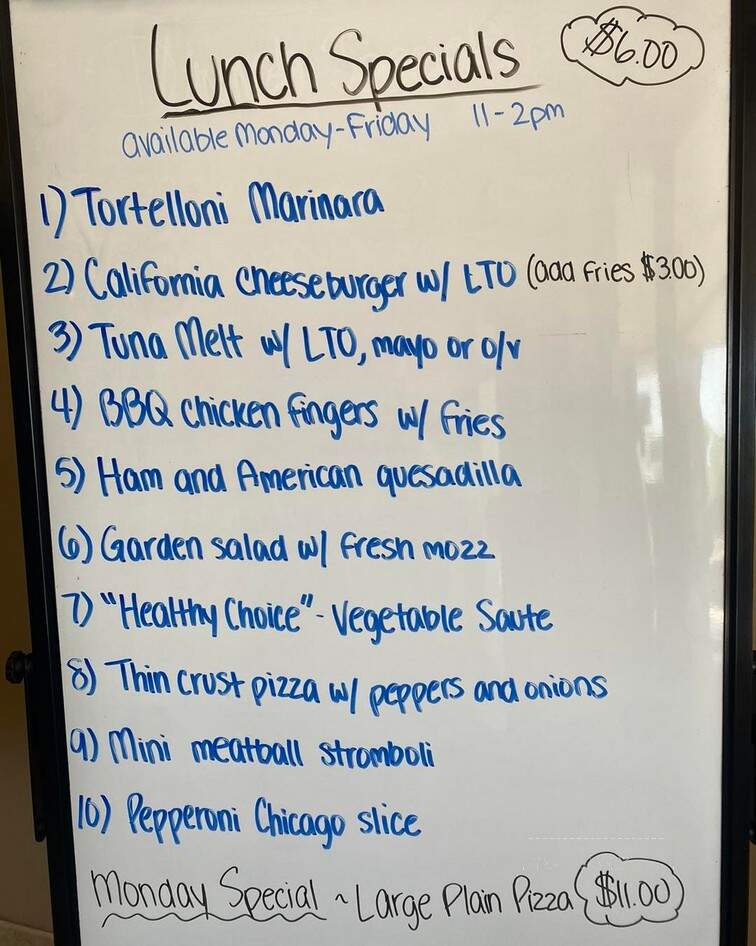 Lunch Specials $6.00
available Monday-Friday 11-2pm
1) Tortelloni Marinara
2) California cheeseburger w/ LTO (add fries $3.00)
3) Tuna Melt w/ LTO, mayo or o/v
4) BBQ chicken fingers w/ fries
5) Ham and American quesadilla
6) Garden salad w/ fresh mozz
7) "Healthy Choice" - Vegetable Saute
8) Thin crust pizza w/ peppers and onions
9) Mini meatball stromboli
10) Pepperoni Chicago slice
Monday Special ~ Large Plain Pizza $11.00